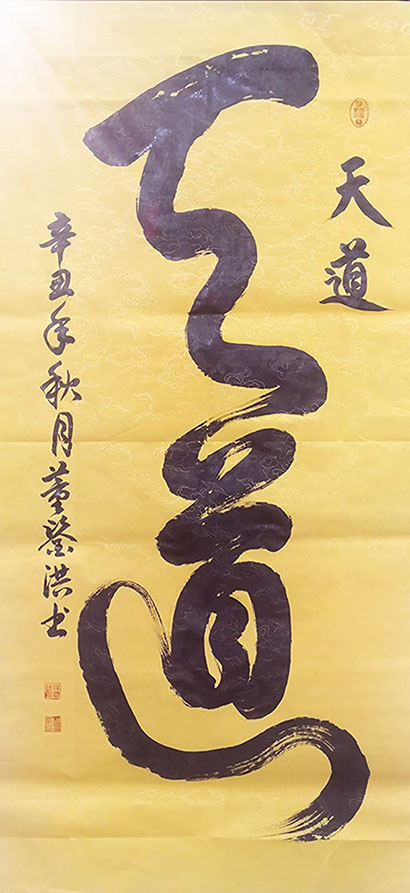 天道
天道
辛丑年秋月董鉴洪书